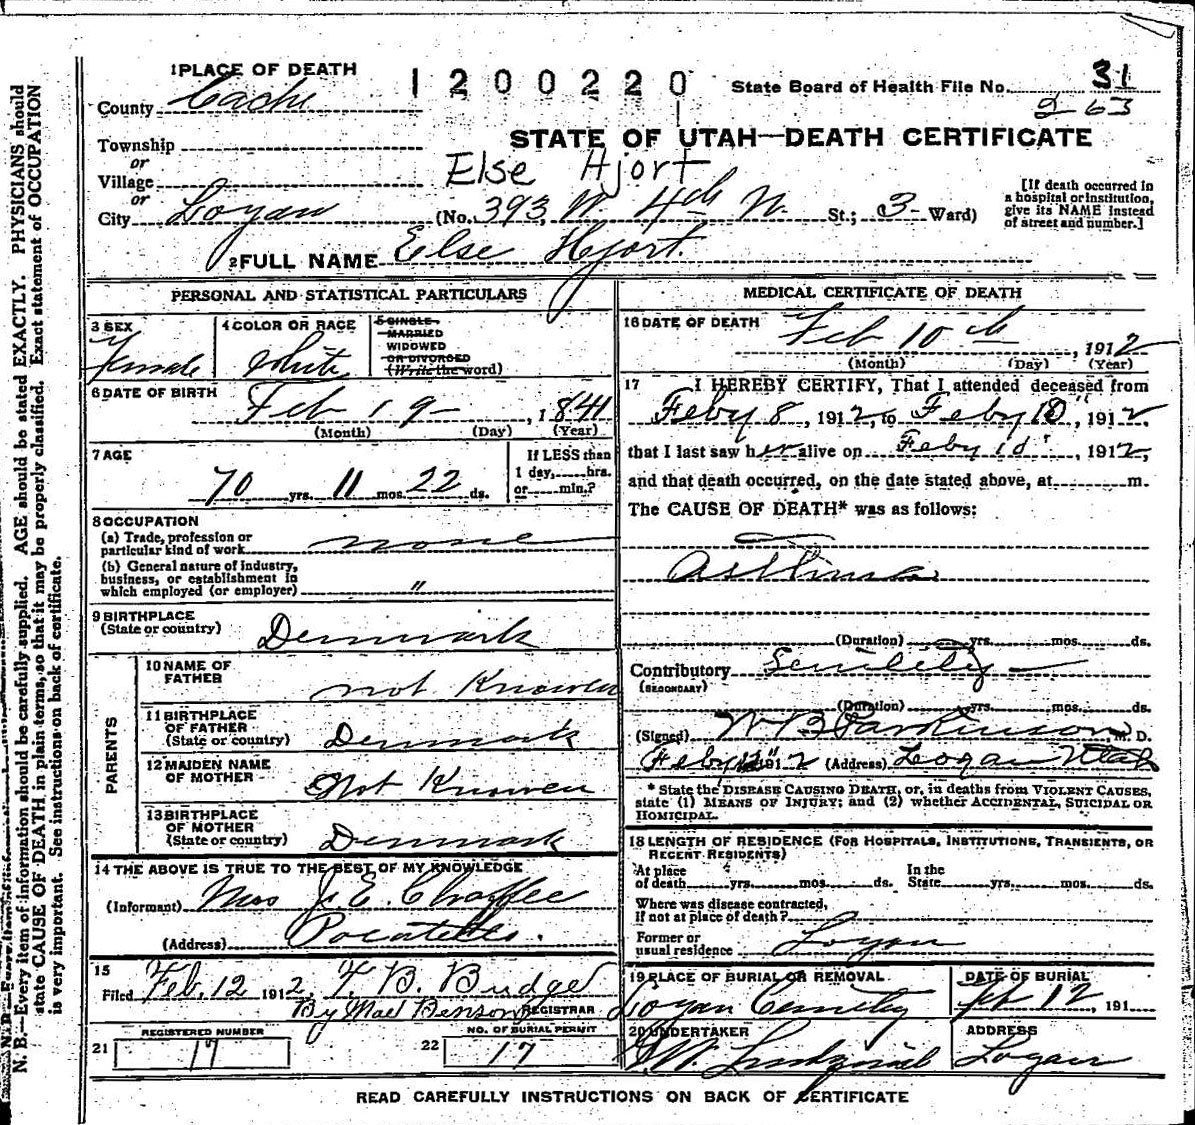 1 PLACE OF DEATH
1200220
State Board of Health File No. 31
263
County Cache
STATE OF UTAH—DEATH CERTIFICATE
Township
or
Else Hjort
Village
or
City Logan (No. 393 W 4th N. St.; 3 Ward)
[If death occurred in a hospital or institution, give its NAME instead of street and number.]
2 FULL NAME Else Hjort.
PERSONAL AND STATISTICAL PARTICULARS
3 SEX
Female
4 COLOR OR RACE
White
5 SINGLE,
MARRIED
WIDOWED
OR DIVORCED
(Write the word)
6 DATE OF BIRTH
Feb 19 , 1841
(Month) (Day) (Year)
7 AGE
70 yrs. 11 mos. 22 ds.
If LESS than
1 day, hrs.
or min.?
8 OCCUPATION
(a) Trade, profession or
particular kind of work none
(b) General nature of industry,
business, or establishment in
which employed (or employer) "
9 BIRTHPLACE
(State or country) Denmark
PARENTS
10 NAME OF
FATHER not Knowen
11 BIRTHPLACE
OF FATHER
(State or country) Denmark
12 MAIDEN NAME
OF MOTHER Not Knowen
13 BIRTHPLACE
OF MOTHER
(State or country) Denmark
14 THE ABOVE IS TRUE TO THE BEST OF MY KNOWLEDGE
(Informant) Mrs J. E. Chaffee
(Address) Pocatello.
15
Filed Feb. 12 1912. F. B. Budge
By Mae Benson REGISTRAR
REGISTERED NUMBER
21 17
NO. OF BURIAL PERMIT
22 17
MEDICAL CERTIFICATE OF DEATH
16 DATE OF DEATH
Feb 10th , 1912
(Month) (Day) (Year)
17 I HEREBY CERTIFY, That I attended deceased from
Feby 8, 1912, to Feby 10", 1912
that I last saw her alive on Feby 10", 1912,
and that death occurred, on the date stated above, at m.
The CAUSE OF DEATH* was as follows:
Asthma
(Duration) yrs. mos. ds.
Contributory Senility
(SECONDARY)
(Duration) yrs. mos. ds.
(Signed) W B Parkinson M. D.
Feby 12" 1912 (Address) Logan Utah
* State the DISEASE CAUSING DEATH, or, in deaths from VIOLENT CAUSES,
state (1) MEANS OF INJURY; and (2) whether ACCIDENTAL, SUICIDAL OR
HOMICIDAL.
18 LENGTH OF RESIDENCE (FOR HOSPITALS, INSTITUTIONS, TRANSIENTS, OR
RECENT RESIDENTS)
At place In the
of death yrs. mos. ds. State yrs. mos. ds.
Where was disease contracted,
if not at place of death?
Former or
usual residence Logan
19 PLACE OF BURIAL OR REMOVAL
Logan Cemetery
DATE OF BURIAL
Feb 12, 191
20 UNDERTAKER
ADDRESS
Logan
READ CAREFULLY INSTRUCTIONS ON BACK OF CERTIFICATE
N. B.—Every item of information should be carefully supplied. AGE should be stated EXACTLY. PHYSICIANS should
state CAUSE OF DEATH in plain terms, so that it may be properly classified. Exact statement of OCCUPATION
is very important. See instructions on back of certificate.